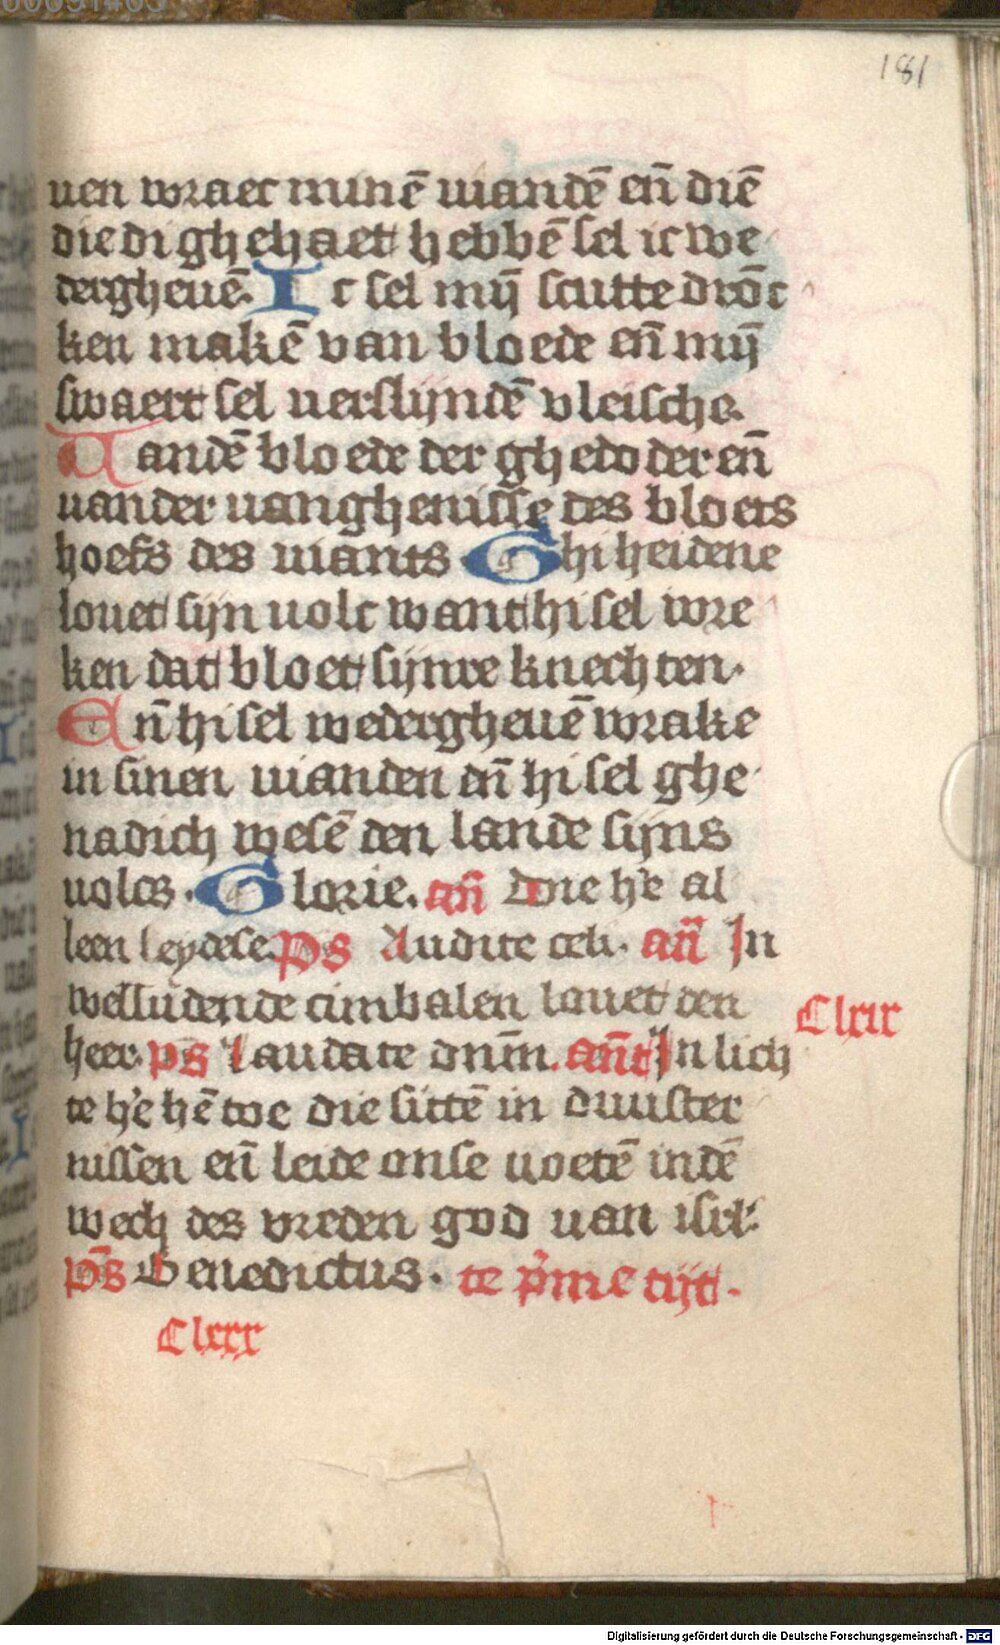 181
uen wraec minē uiandē en̄ diē
die di ghehaet hebbē sel ic we
dergheuē. Ic sel mij̄ scutte drōc
ken makē van bloede en̄ mij̄
swaert sel uerslijndē vleische.
Uandē bloede der ghedoder en̄
uander uanghenisse des bloets
hoefs des uiants Ghi heidene
louet sijn uolc want hi sel wre
ken dat bloet sijnre knechten.
En̄ hi sel wedergheuē wrake
in sinen uianden en̄ hi sel ghe
nadich wesē den lande sijns
uolcs. Glorie. an̄ Die he al
leen leydese. Ps Audite celi. an̄ In
welludende cimbalen louet den
heer. ps Laudate dnm̄. an̄t In lich
te he hē toe die sittē in duuster
nissen en̄ leide onse uoetē indē
wech des vreden god uan isrl.
ps̄ Benedictus. te pͥme tijt.
Clxix
Clxxx
Digitalisierung gefördert durch die Deutsche Forschungsgemeinschaft - DFG